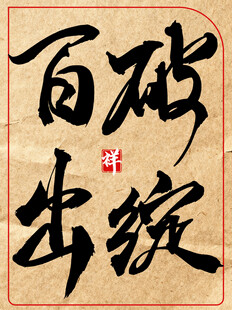 破绽
百出
祥